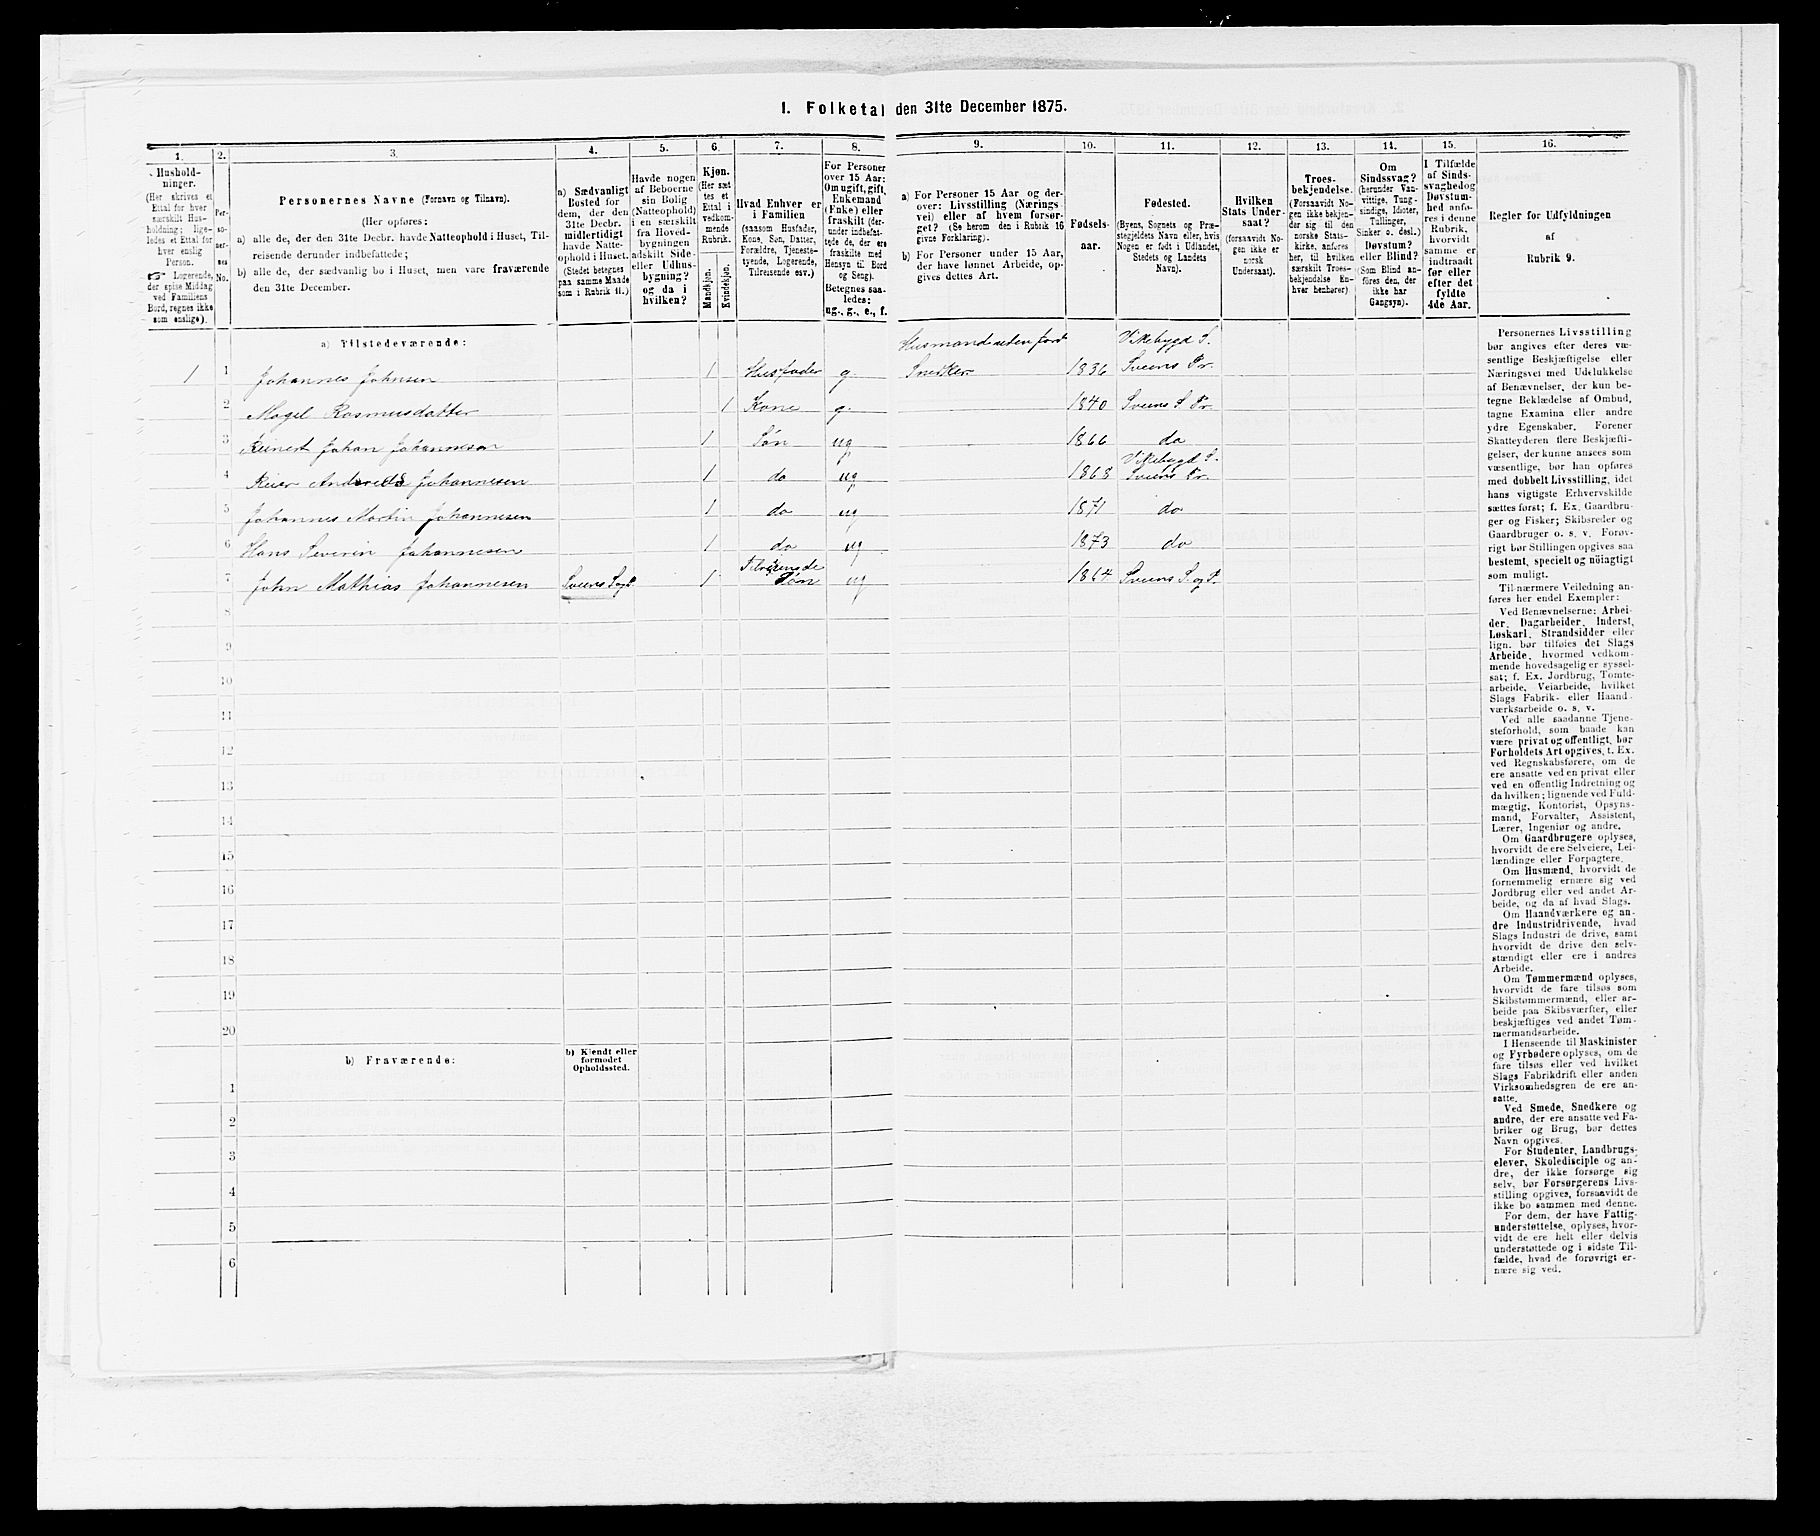 1. Folketal den 31te December 1875.
1. 2. 3. 4. 5. 6. 7. 8. 9. 10. 11. 12. 13. 14. 15. 16.
Hushold-
ninger.
(Her skrives et
Ettal for hver
særskilt Hus-
holdning; lige-
ledes et Ettal for
hver enslig
Person.
☞ Logerende,
der spise Middag
ved Familiens
Bord, regnes ikke
som enslige).
Per-
so-
ner-
nes
No.
Personernes Navne (Fornavn og Tilnavn).
(Her opføres:
a) alle de, der den 31te Decbr. havde Natteophold i Huset, Til-
reisende derunder indbefattede;
b) alle de, der sædvanlig bo i Huset, men vare fraværende
den 31te December.
a) Sædvanligt
Bosted for
dem, der den
31te Decbr.
midlertidigt
havde Natte-
ophold i Huset.
(Stedet betegnes
paa samme Maade
som i Rubrik 11.)
Havde nogen
af Beboerne
sin Bolig
(Natteophold)
i en særskilt
fra Hoved-
bygningen
adskilt Side-
eller Udhus-
bygning?
og da i
hvilken?
Kjøn.
(Her sæt
tes et
Ettal i
vedkom-
mende
Rubrik.
Mandkjøn.
Kvindekjøn.
Hvad Enhver er
i Familien
(saasom Husfader,
Kone, Søn, Datter,
Forældre, Tjeneste-
tyende, Logerende,
Tilreisende osv.)
For Personer
over 15 Aar:
Om ugift, gift,
Enkemand
(Enke) eller
fraskilt (der-
under indbefat-
tede de, der ere
fraskilte med
Hensyn til Bord
og Seng).
Betegnes saa-
ledes:
ug., g., e., f.
a) For Personer 15 Aar og der-
over: Livsstilling (Nærings-
vei) eller af hvem forsør-
get? (Se herom den i Rubrik 16
givne Forklaring).
b) For Personer under 15 Aar,
der have lønnet Arbeide, op-
gives dettes Art.
Fødsels-
aar.
Fødested.
(Byens, Sognets og Præ-
stegjeldets Navn eller, hvis
Nogen er født i Udlandet,
Stedets og Landets
Navn).
Hvilken
Stats Under-
saat?
(forsaavidt No-
gen ikke er
norsk
Undersaat).
Troes-
bekjendelse.
(Forsaavidt No-
gen ikke bekjen-
der sig til den
norske Stats-
kirke, anføres
her, til hvilken
særskilt Troes-
bekjendelse En-
hver henhører)
Om
Sindssvag?
(herunder Van-
vittige, Tung-
sindige, Idioter,
Tullinger,
Sinker o. desl.)
Døvstum?
eller Blind?
(Som Blind an-
føres den, der
ikke har
Gangsyn).
I Tilfælde
af Sinds-
svaghed og
Døvstum-
hed anfø-
res i denne
Rubrik,
hvorvidt
samme er
indtraadt
før eller
efter det
fyldte
4de Aar.
Regler for Udfyldningen
af
Rubrik 9.
a) Tilstedeværende:
Husmand uden Jord Vikebygd S.
1 1 Johannes Johnsen 1 Husfader g. Snedker 1836 Sveens Pr.
2 Magel Rasmusdatter 1 Kone g. 1840 Sveens S. Pr.
3 Reinert Johan Johannesen 1 Søn ug 1866 do
4 Reier Andreas Johannesen 1 do ug 1868 Vikebygd S. Sveens Pr.
5 Johannes Martin Johannesen 1 do ug 1871 do
6 Hans Severin Johannesen 1 do ug 1873 do
7 John Mathias Johannesen Sveens S. og P. 1 Tilreisende Søn ug 1864 Sveens S. og P.
8
9
10
11
12
13
14
15
16
17
18
19
20
b) Fraværende:
b) Kjendt eller
formodet
Opholdssted.
1
2
3
4
5
6
Personernes Livsstilling
bør angives efter deres væ-
sentlige Beskjæftigelse eller
Næringsvei med Udelukkelse
af Benævnelser, der kun be-
tegne Beklædelse af Ombud,
tagne Examina eller andre
ydre Egenskaber. Forener
Skatteyderen flere Beskjæfti-
gelser, der kunne ansees som
væsentlige, bør han opføres
med dobbelt Livsstilling, idet
hans vigtigste Erhvervskilde
sættes først; f. Ex. Gaardbru-
ger og Fisker; Skibsreder og
Gaardbruger o. s. v. Forøv-
rigt bør Stillingen opgives saa
bestemt, specielt og nöiagtigt
som muligt.
Til nærmere Veiledning an-
føres her endel Exempler:
Ved Benævnelserne: Arbei-
der, Dagarbeider, Inderst,
Løskarl, Strandsidder eller
lign. bør tilføies det Slags
Arbeide, hvormed vedkom-
mende hovedsagelig er syssel-
sat; f. Ex. Jordbrug, Tomte-
arbeide, Veiarbeide, hvilket
Slags Fabrik- eller Haand-
værksarbeide o. s. v.
Ved alle saadanne Tjene-
steforhold, som baade kan
være privat og offentligt, bør
Forholdets Art opgives, t. Ex.
ved Regnskabsførere, om de
ere ansatte ved en privat eller
ved en offentlig Indretning og
da hvilken; lignende ved Fuld-
mægtig, Kontorist, Opsyns-
mand, Forvalter, Assistent,
Lærer, Ingeniør og andre.
Om Gaardbrugere oplyses,
hvorvidt de ere Selveiere, Lei-
lændinge eller Forpagtere.
Om Husmænd, hvorvidt de
fornemmelig ernære sig ved
Jordbrug eller ved andet Ar-
beide, og da af hvad Slags.
Om Haandværkere og an-
dre Industridrivende, hvad
Slags Industri de drive, samt
hvorvidt de drive den selv-
stændigt eller ere i andres
Arbeide.
Om Tømmermænd oplyses,
hvorvidt de fare tilsøs som
Skibstømmermænd, eller ar-
beide paa Skibsværfter, eller
beskjæftiges ved andet Tøm-
mermandsarbeide.
I Henseende til Maskinister
og Fyrbødere oplyses, om de
fare tilsøs eller ved hvilket
Slags Fabrikdrift eller anden
Virksomhedsgren de ere an-
satte.
Ved Smede, Snedkere og
andre, der ere ansatte ved Fa-
briker og Brug, bør dettes
Navn opgives.
For Studenter, Landbrugs-
elever, Skoledisciple og an-
dre, der ikke forsørge sig
selv, bør Forsørgerens Livs-
stilling opgives, forsaavidt de
ikke bo sammen med denne.
For dem, der have Fattig-
understøttelse, oplyses, hvor-
vidt de ere helt eller delvis
understøttede og i sidste Til-
fælde, hvad de forøvrigt er-
nære sig ved.